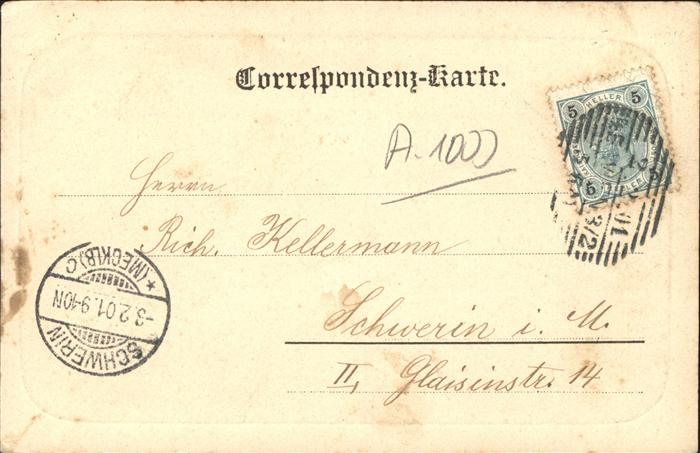 Correſpondenz-Karte.
5 KELLER 5
5 5
01
3/2
A. 1000
Herrn
Rich. Kellermann
Schwerin i. M.
II, Glaisinstr. 14
SCHWERIN
-3.2.01.9-10N
*(MECKLB)C